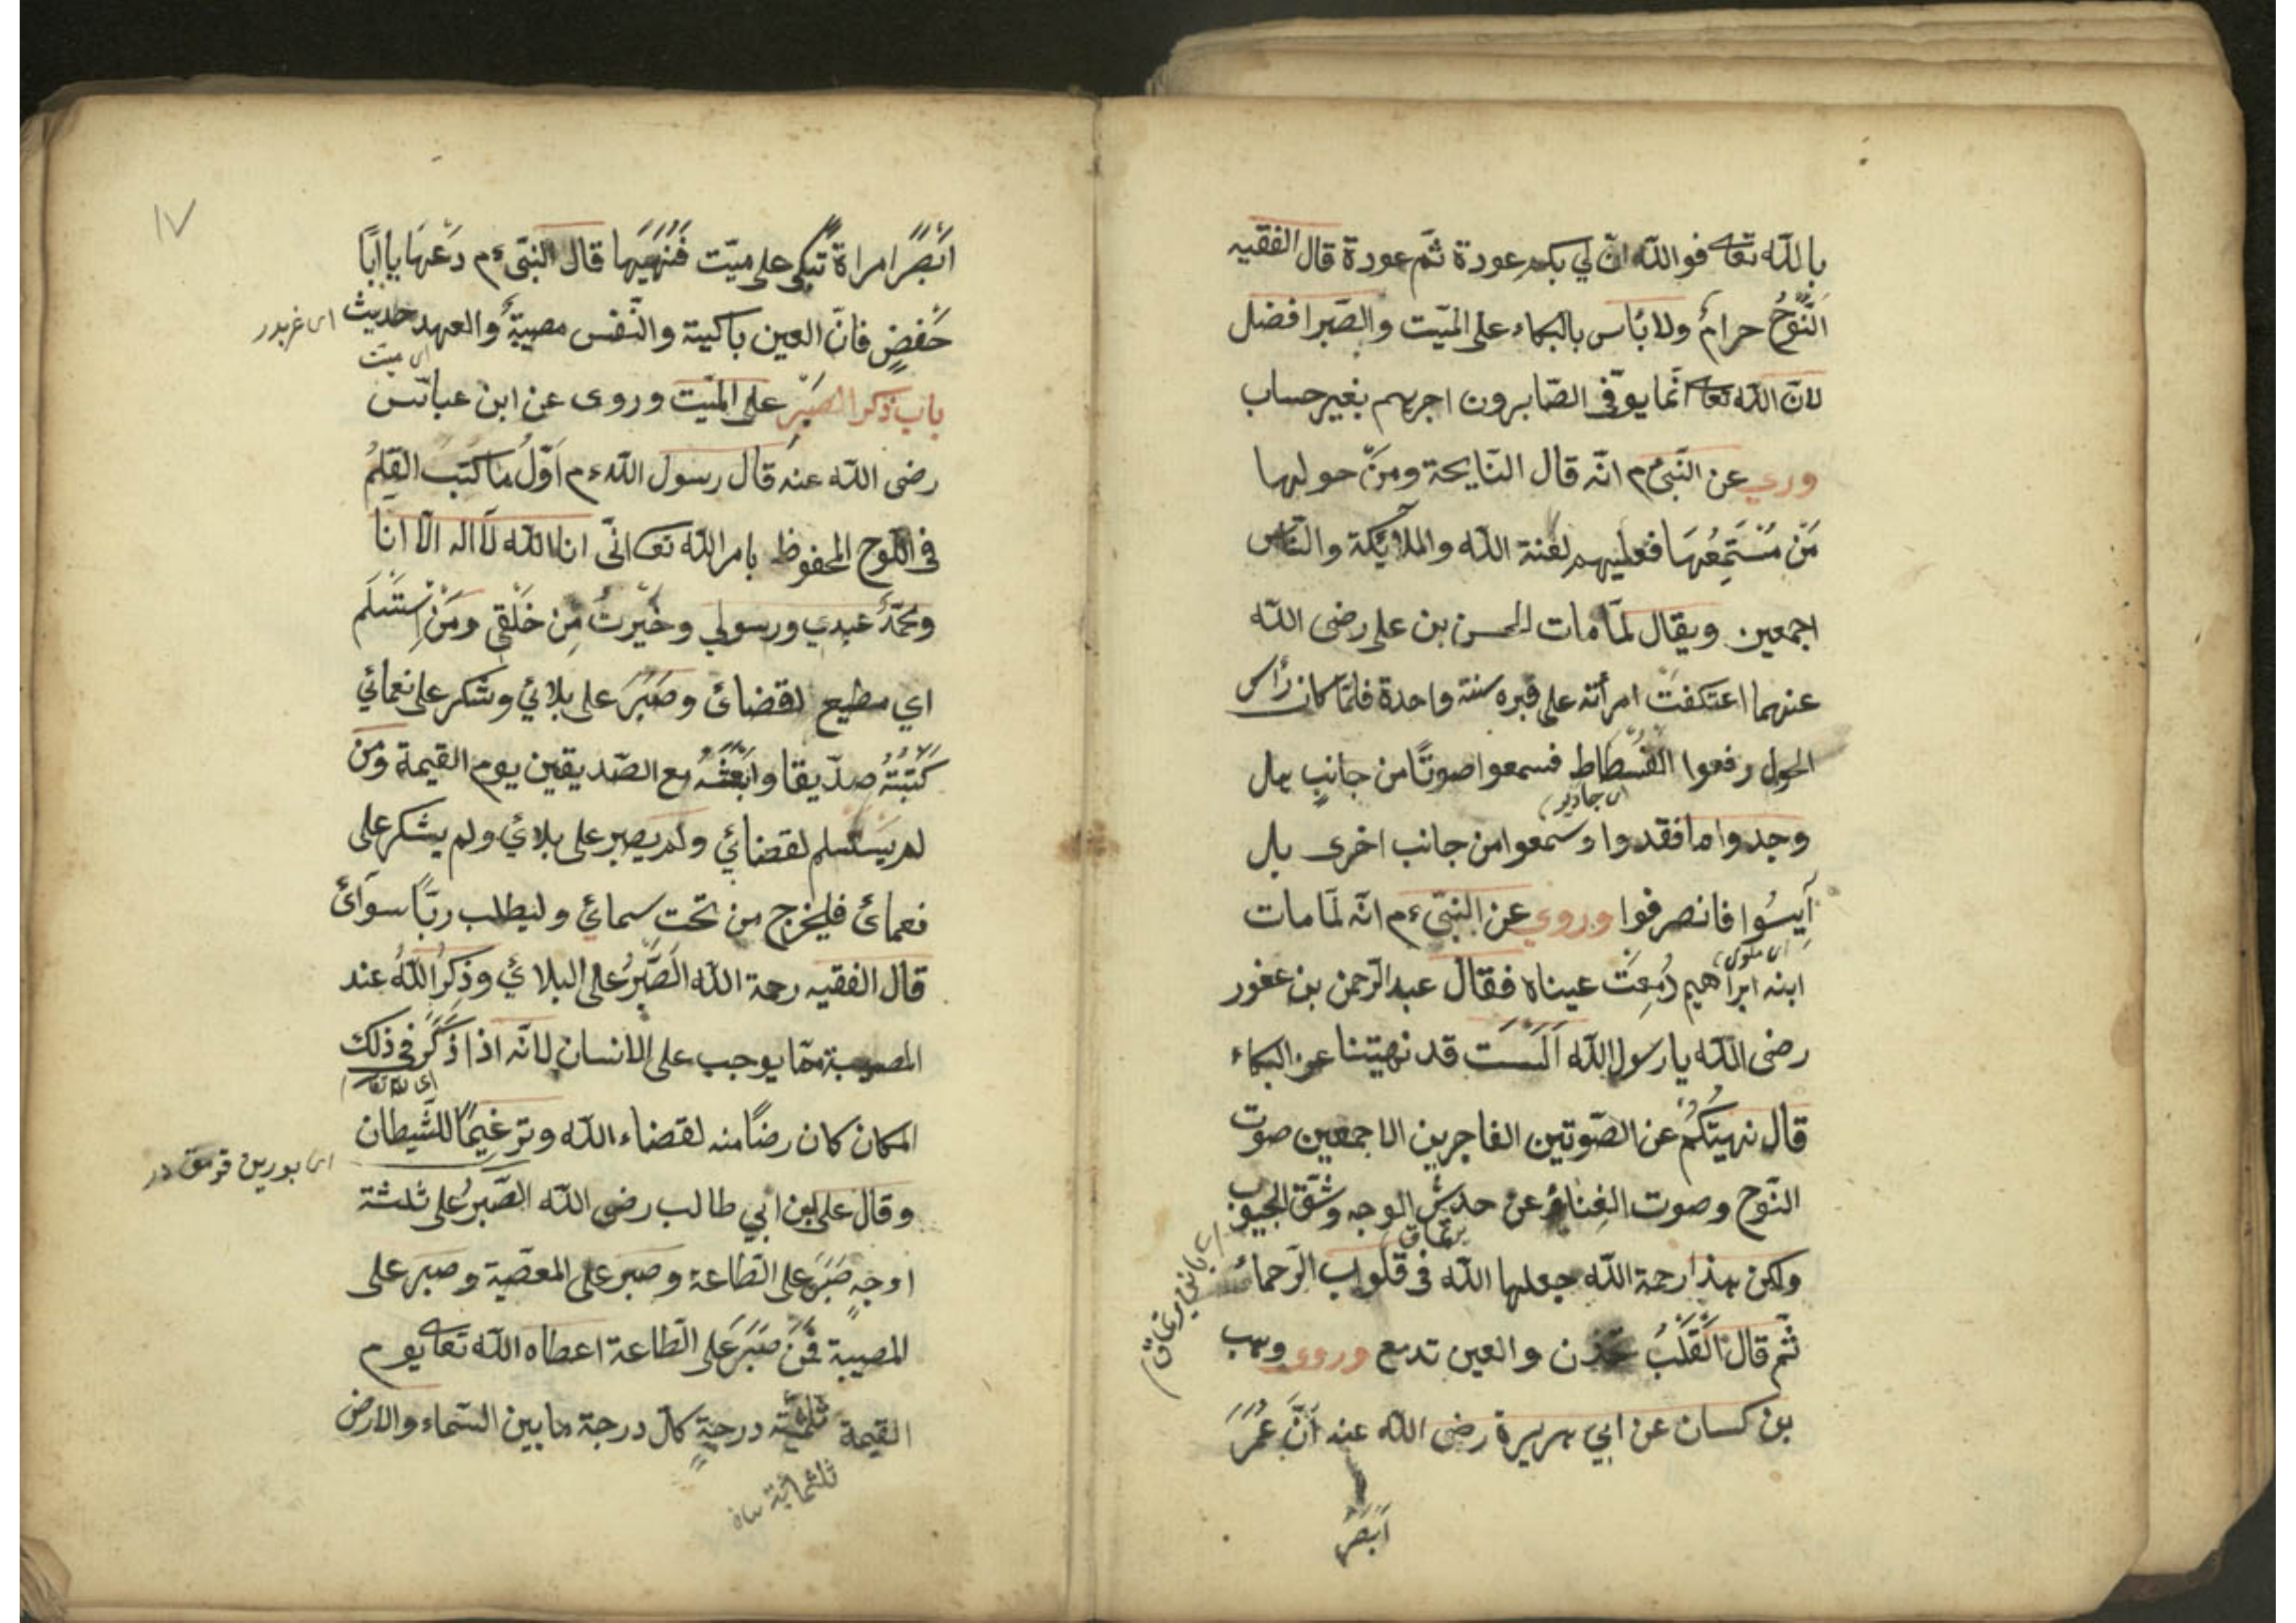 بالله تعالى فوالله انّ لي بكم عودة ثمّ عودة قال الفقيه
النَّوْحُ حرامٌ ولا بأس بالبكاء على الميّت والصّبر افضل
لانّ الله تعالى انّما يوفّى الصّابرون اجرهم بغير حساب
وري عن النّبىّ م انّه قال النّايحة ومَنْ حولها
مَنْ مُسْتَمِعُهَا فعليهم لعنة الله والملائكة والنّاس
اجمعين ويقال لمّا مات الحسن بن على رضى الله
عنهما اعتكفت امرأته على قبره سنة واحدة فلمّا كان رأس
الحول رفعوا الفُسْطَاط فسمعوا صوتًا من جانبٍ هل
اى جادر
وجدوا ما فقدوا وسمعوا من جانب اخرى بل
آيِسُوا فانصرفوا وروى عن النّبىّ ءم انّه لمّا مات
ابنه ابراهيم دُمِعَتْ عيناه فقال عبد الرّحمن بن عفور
رضى الله يا رسول الله اَلَسْتَ قد نهيتنا عن البكاء
قال نهيتُكُمْ عن الصّوتين الفاجرين الاجمعين صوت
النّوح وصوت الغِناء وعن حدش الوجه وشقّ الجيوب
ولكن هذا رحمة الله جعلها الله فى قلوب الرّحماء
ثمّ قال اَلْقَلْبُ تحزن والعين تدمع وروى وهب
بن كسان عن ابي هريرة رضى الله عنه اَنَّ عُمَرَ
اَبْصَرَ
١٧
اَبْصَرَ امراة تبكى على ميّت فَنَهَيَهَا قال النّبىّ ءم دَعْهَا يا اَبَا
حَفْصٍ فانّ العين باكية والنّفس مصيبةٌ والعهد حديث
اى ميّت
باب ذكر الصَّبْرِ على الميّت وروى عن ابن عبّاس
رضى الله عنه قال رسول الله ءم اَوَّلُ ما كتب القلمُ
فى اللّوح المحفوظ بامر الله تعالى انّى انا الله لا اله الّا انا
ومحمّدٌ عبدي ورسولي وخَيْرتُ مِن خَلْقِى ومَنْ اِسْتَسْلَمَ
اي مطيع لقضائ وصَبَرَ على بلائي وشكر على نعمائي
كَتَبْتُهُ صدّيقا وابْعَثُهُ مع الصّديقين يوم القيمة ومن
لم يَسْتَسلم لقضائي ولم يصبر على بلائي ولم يشكر على
نعمائ فليخرج من تحت سمائي وليطلب ربًّا سوائ
قال الفقيه رحمة الله اَلصَّبْرُ على البلائي وذِكرُ اللّهُ عند
المصيبة ممّا يوجب على الانسان لانّه اذا ذَكَرَ فى ذلك
المكان كان رضًا منه لقضاء الله وترغيمًا للشّيطان
وقال على بن ابي طالب رضى الله الصَّبْرُ على ثلثة
اوجهٍ صَبَرَ على الطّاعة وصبر على المعصية وصبر على
المصيبة فَمَنْ صَبَرَ على الطّاعة اعطاه الله تعالى يوم
القيمة ثلثمئة درجةٍ كلّ درجة ما بين السّماء والارض
ثلثمائية